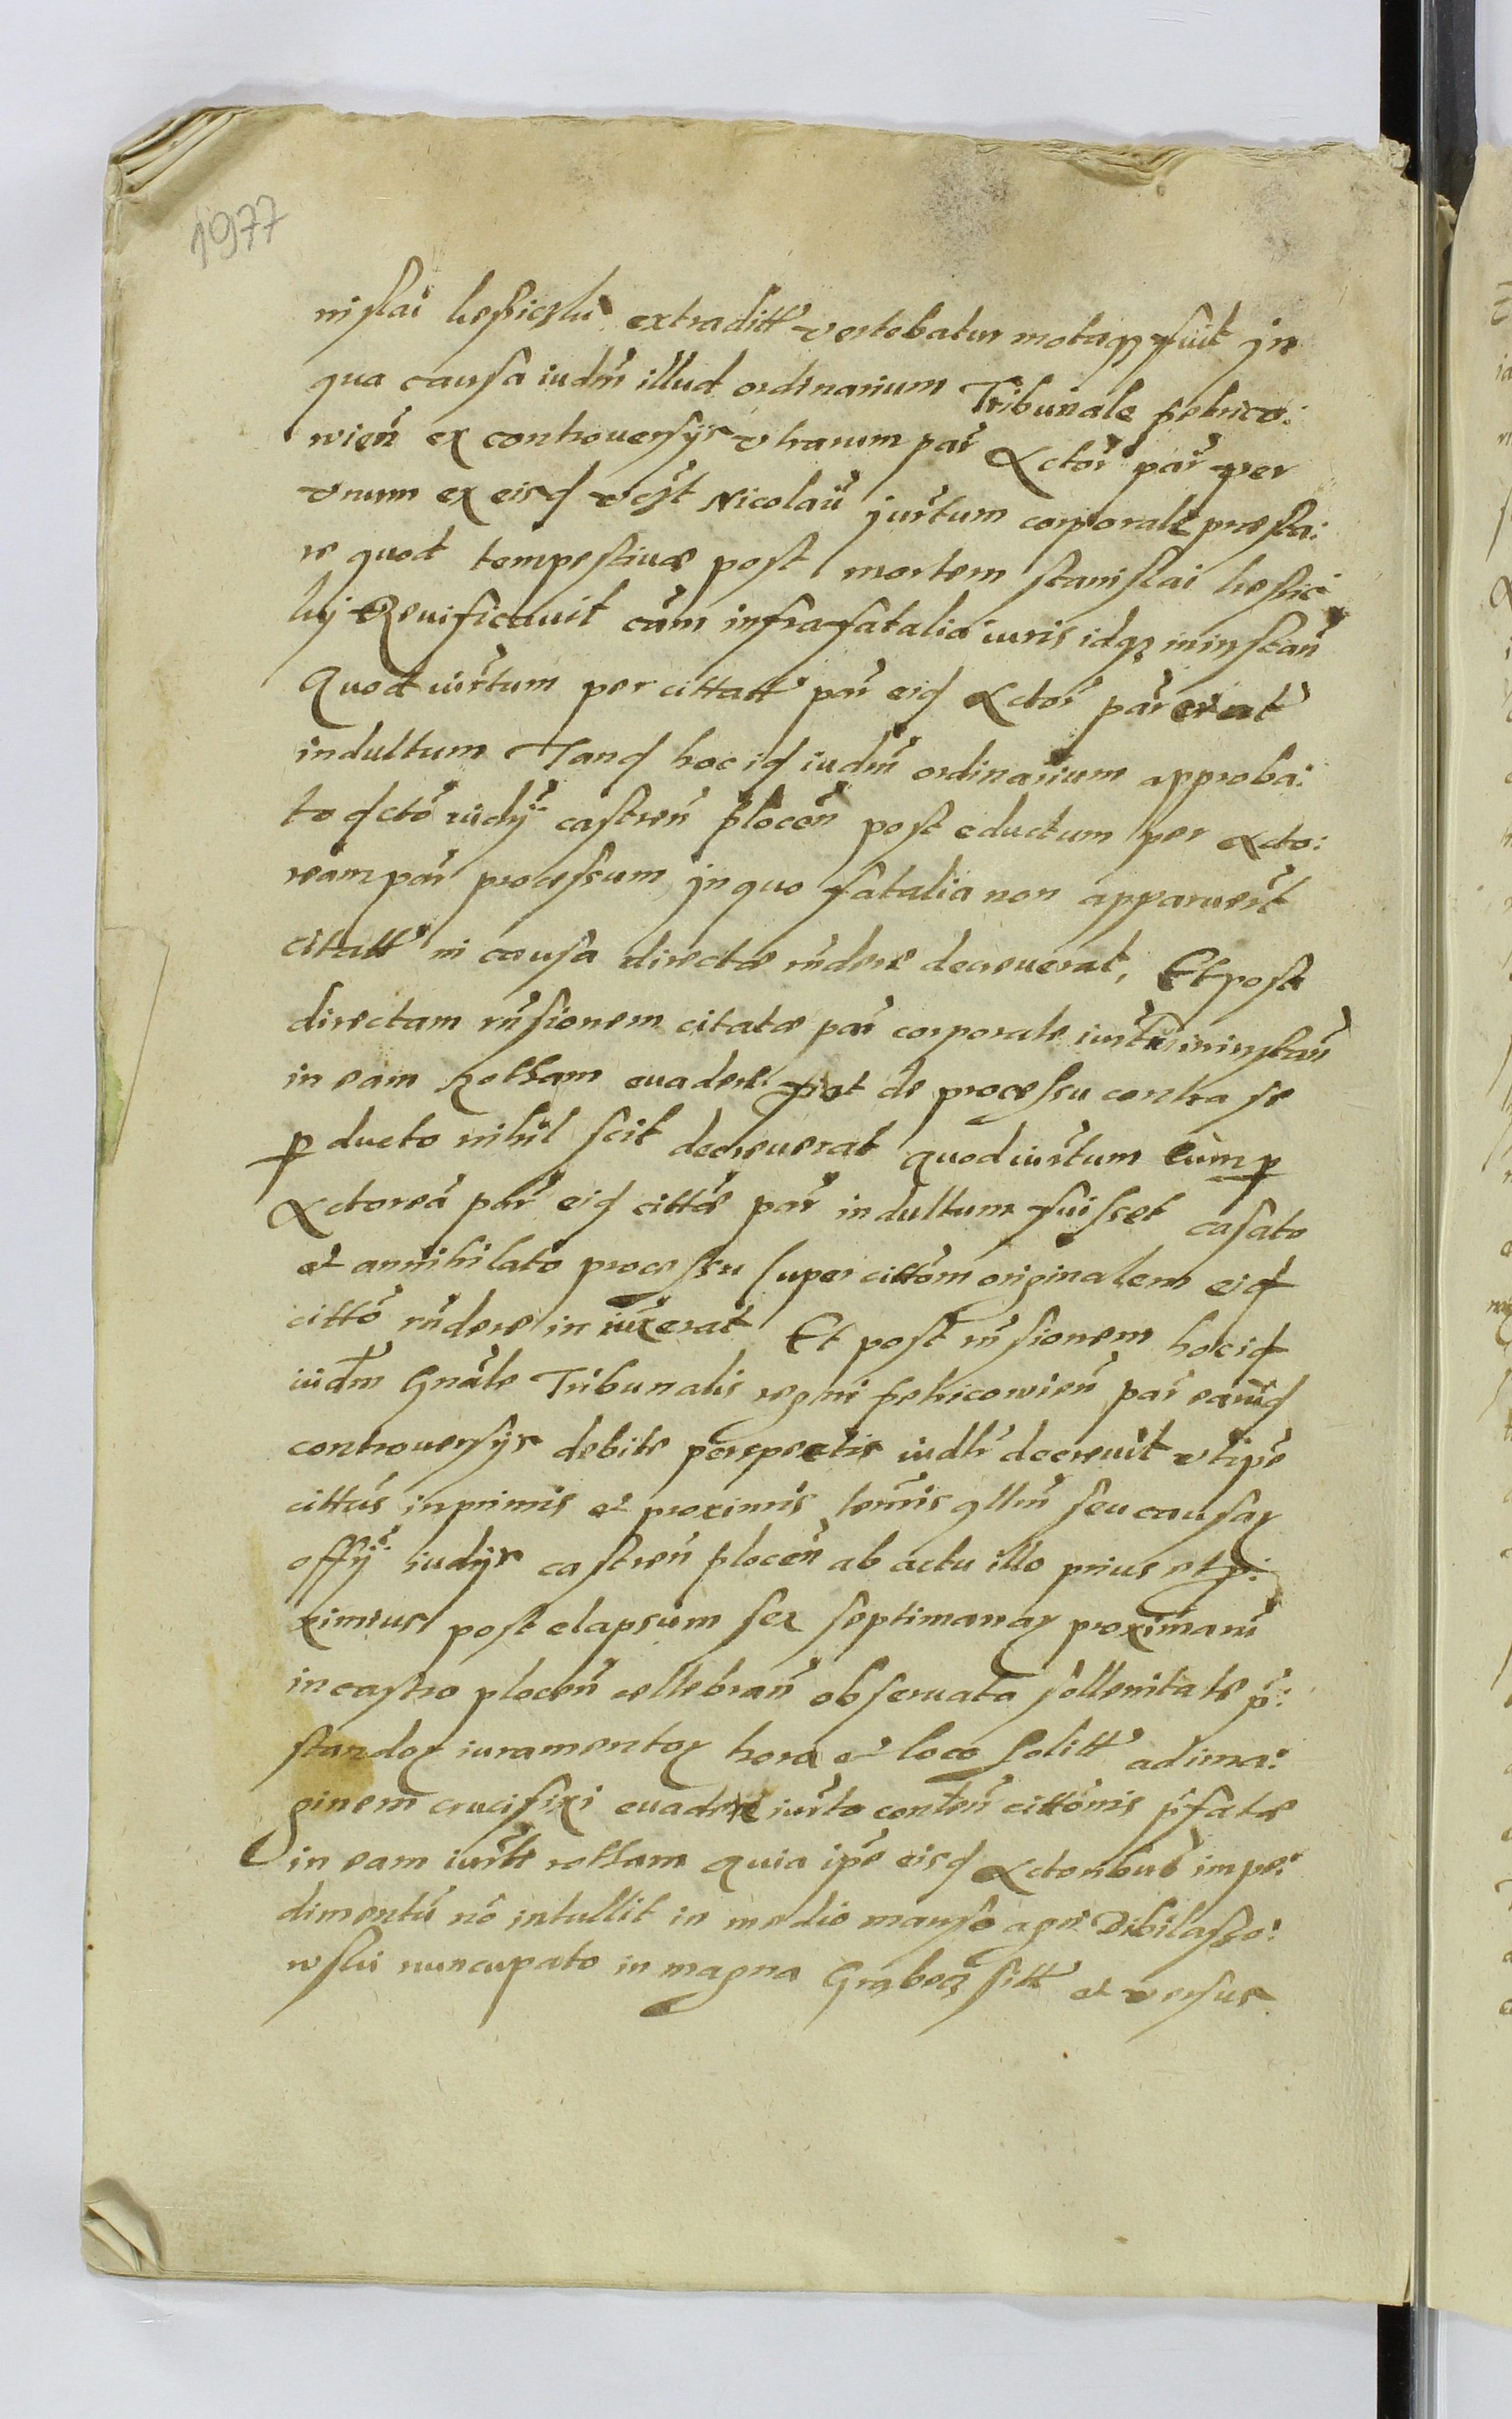 1977
nislai leßiczki extraditt vertebatur motaqз fuit jn
qua causa iudm̃ illud ordinarium Tribunale petrico:
wien̄ ex controuersÿs vtrarum par̄ Actor̄ par̄ per
vnum ex eisd vczt Nicolaū jur̄tum corporale præsta:
re quod tempestiuæ post mortem stanislai lestic
kÿ Reuificauit cām infra fatalia iuris idqз minstan̄
Quod iur̄tum per cittatt par̄ eid Actor̄ par̄ erat
indultum Tand hoc id iudm̃ ordinarium approba:
to dctō iudÿ castren̄ plocen̄ post eductum per Acto:
ream par̄ processum jn quo fatalia non apparuer̄t
citatt in causa directæ rn̄dere decreuerat, Et post
directam rn̄sionem citatæ par̄ corporale iur̄tū minstan̄
in eam rottam euadere p̱ut de processu contra se
p̱ ducto nihil scit decreuerat quod iur̄tum cum p̱
Actoreā par̄ eid cittæ par̄ indultum fuisset casato
et annihilato processu super cittōm originalem eid
cittō rn̄dere in iuxerat Et post rn̄sionem hoc id
iudm̃ Gnāle Tribunalis regni petricowien̄ par̄ earud
controuersÿs debite perspectis iudłr decreuit vt ipē
cittus inprimis et proximis ter̄mis qllm̄ seu causaꝝ
offÿ iudÿs castren̄ plocen̄ ab actu illo prius et p̱:
ximius post elapsum sex septimanaꝝ proximarū
in castro plocen̄ cellebran̄ obseruata sollenitate p̄:
standoꝝ iuramentoꝝ hora et loco solitt ad ima:
ginem crucifixi euadere iur̄to conten̄ cittōnis p̄fatæ
in eam iur̄tt rottam quia ipē eisd Actoribus impe:
dimentū nō intullit in medio manso agri Dibilaßo:
wski nuncupato in magna Grabecz sitt et versus